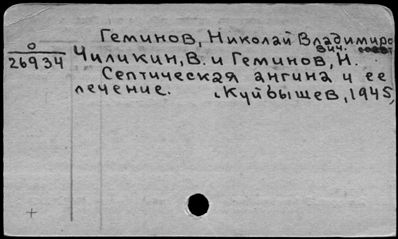 Геминов, Николай Владимиро
вич.
О
26934
Чиликин, В. и Геминов, Н.
Септическая ангина и ее
лечение. Куйбышев, 1945,
+